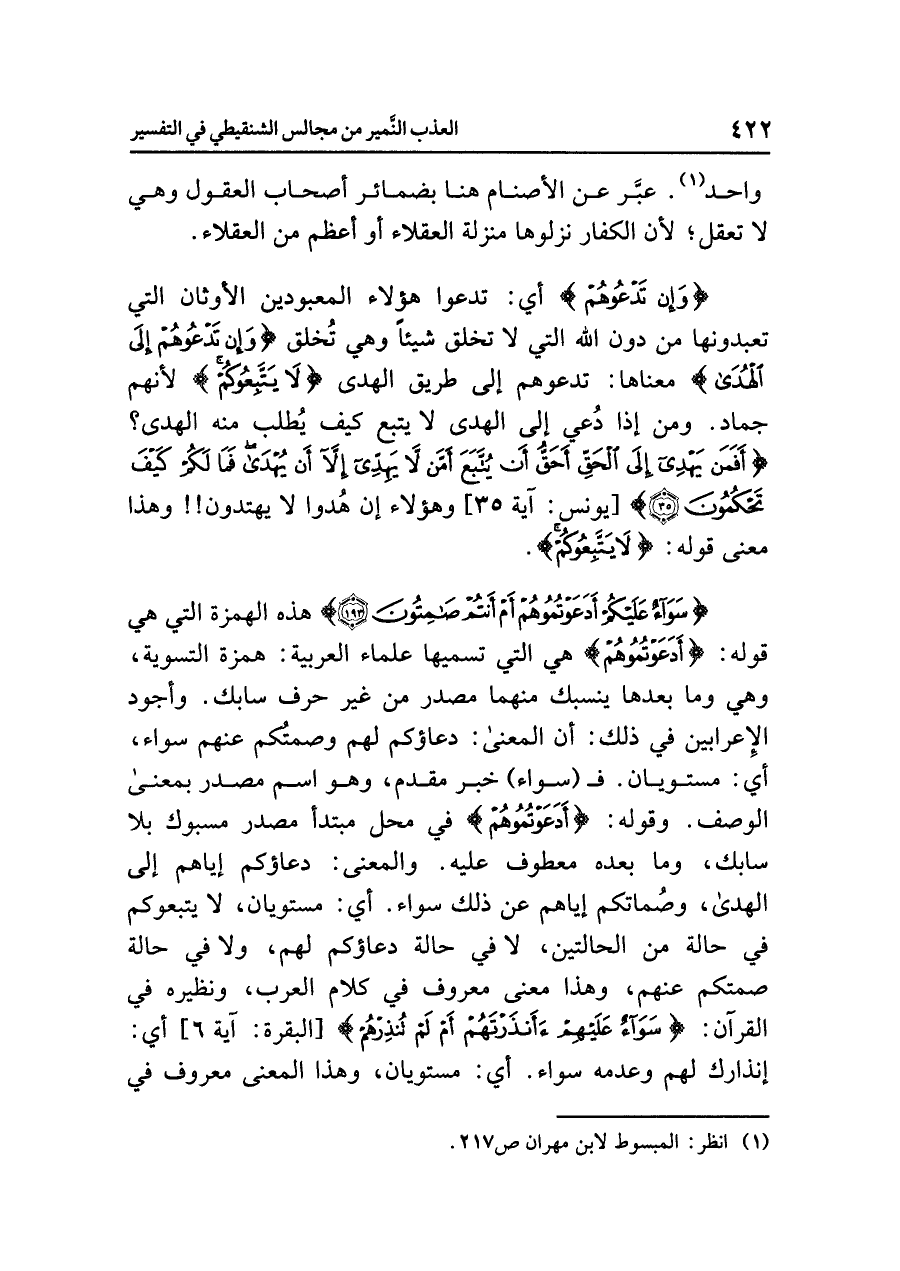 ٤٢٢ العذب النَّمير من مجالس الشنقيطي في التفسير
واحد(١). عبَّر عن الأصنام هنا بضمائر أصحاب العقول وهي
لا تعقل؛ لأن الكفار نزلوها منزلة العقلاء أو أعظم من العقلاء.
﴿وَإِن تَدْعُوهُمْ﴾ أي: تدعوا هؤلاء المعبودين الأوثان التي
تعبدونها من دون الله التي لا تخلق شيئاً وهي تُخلق ﴿وَإِن تَدْعُوهُمْ إِلَى
ٱلْهُدَىٰ﴾ معناها: تدعوهم إلى طريق الهدى ﴿لَا يَتَّبِعُوكُمْ ۚ﴾ لأنهم
جماد. ومن إذا دُعي إلى الهدى لا يتبع كيف يُطلب منه الهدى؟
﴿أَفَمَن يَهْدِىٓ إِلَى ٱلْحَقِّ أَحَقُّ أَن يُتَّبَعَ أَمَّن لَّا يَهِدِّىٓ إِلَّآ أَن يُهْدَىٰ ۖ فَمَا لَكُمْ كَيْفَ
تَحْكُمُونَ ٣٥﴾ [يونس: آية ٣٥] وهؤلاء إن هُدوا لا يهتدون!! وهذا
معنى قوله: ﴿لَا يَتَّبِعُوكُمْ ۚ﴾.
﴿سَوَآءٌ عَلَيْكُمْ أَدَعَوْتُمُوهُمْ أَمْ أَنتُمْ صَـٰمِتُونَ ١٩٣﴾ هذه الهمزة التي هي
قوله: ﴿أَدَعَوْتُمُوهُمْ﴾ هي التي تسميها علماء العربية: همزة التسوية،
وهي وما بعدها ينسبك منهما مصدر من غير حرف سابك. وأجود
الإعرابين في ذلك: أن المعنىٰ: دعاؤكم لهم وصمتُكم عنهم سواء،
أي: مستويان. فـ (سواء) خبر مقدم، وهو اسم مصدر بمعنىٰ
الوصف. وقوله: ﴿أَدَعَوْتُمُوهُمْ﴾ في محل مبتدأ مصدر مسبوك بلا
سابك، وما بعده معطوف عليه. والمعنى: دعاؤكم إياهم إلى
الهدىٰ، وصُماتكم إياهم عن ذلك سواء. أي: مستويان، لا يتبعوكم
في حالة من الحالتين، لا في حالة دعاؤكم لهم، ولا في حالة
صمتكم عنهم، وهذا معنى معروف في كلام العرب، ونظيره في
القرآن: ﴿سَوَآءٌ عَلَيْهِمْ ءَأَنذَرْتَهُمْ أَمْ لَمْ تُنذِرْهُمْ﴾ [البقرة: آية ٦] أي:
إنذارك لهم وعدمه سواء. أي: مستويان، وهذا المعنى معروف في
(١) انظر: المبسوط لابن مهران ص٢١٧.